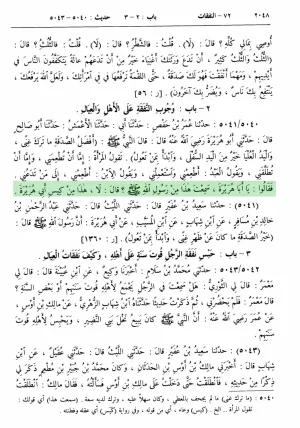 ٢٠٤٨ ٧٢ - النفقات باب ٢ - ٣ حديث: ٥٠٤٠ - ٥٠٤٣
أُوصِي بِمَالِي كُلِّهِ؟ قالَ: (لَا). قُلْتُ: فَالشَّطْرُ؟ قالَ: (لَا). قُلْتُ: فَالثُّلُثُ؟ قالَ:
(الثُّلُثُ، وَالثُّلُثُ كَثِيرٌ، أَنْ تَدَعَ وَرَثَتَكَ أَغْنِيَاءَ خَيْرٌ مِنْ أَنْ تَدَعَهُمْ عَالَةً يَتَكَفَّفُونَ النَّاسَ في
أَيْدِيهِمْ، وَمَهْمَا أَنْفَقْتَ فَهُوَ لَكَ صَدَقَةٌ، حَتَّى اللُّقْمَةَ تَرْفَعُهَا في في امْرَأَتِكَ، وَلَعَلَّ اللهَ يَرْفَعُكَ،
يَنْتَفِعُ بِكَ نَاسٌ، وَيُضَرُّ بِكَ آخَرُونَ). [ر: ٥٦]
٢ - باب: وُجُوبِ النَّفَقَةِ عَلَى الْأَهْلِ وَالْعِيَالِ.
٥٠٤١/٥٠٤٠: حدّثنا عُمَرُ بْنُ حَفْصٍ: حَدَّثَنَا أَبِي: حَدَّثَنَا الْأَعْمَشُ: حَدَّثَنَا أَبُو صَالِحٍ
قالَ: حَدَّثَنِي أَبُو هُرَيْرَةَ رَضِيَ اللهُ عَنْهُ قالَ: قالَ النَّبِيُّ ﷺ: (أَفْضَلُ الصَّدَقَةِ مَا تَرَكَ غِنًى،
وَالْيَدُ الْعُلْيَا خَيْرٌ مِنَ الْيَدِ السُّفْلَى، وَابْدَأْ بِمَنْ تَعُولُ). تَقُولُ الْمَرْأَةُ: إِمَّا أَنْ تُطْعِمَنِي، وَإِمَّا أَنْ
تُطَلِّقَنِي، وَيَقُولُ الْعَبْدُ: أَطْعِمْنِي وَاسْتَعْمِلْنِي، وَيَقُولُ الِابْنُ: أَطْعِمْنِي، إِلَى مَنْ تَدَعُنِي.
فَقَالُوا: يَا أَبَا هُرَيْرَةَ، سَمِعْتَ هَذَا مِنْ رَسُولِ اللهِ ﷺ؟ قالَ: لَا، هَذَا مِنْ كِيسِ أَبِي هُرَيْرَةَ.
(٥٠٤١): حدّثنا سَعِيدُ بْنُ عُفَيْرٍ قالَ: حَدَّثَنِي اللَّيْثُ قالَ: حَدَّثَنِي عَبْدُ الرَّحْمٰنِ بْنُ
خالِدِ بْنِ مُسَافِرٍ، عَنِ ابْنِ شِهَابٍ، عَنِ ابْنِ الْمُسَيَّبِ، عَنْ أَبِي هُرَيْرَةَ: أَنَّ رَسُولَ اللهِ ﷺ قالَ:
(خَيْرُ الصَّدَقَةِ مَا كَانَ عَنْ ظَهْرِ غِنًى، وَابْدَأْ بِمَنْ تَعُولُ). [ر: ١٣٦٠]
٣ - باب: حَبْسِ نَفَقَةِ الرَّجُلِ قُوتَ سَنَةٍ عَلَى أَهْلِهِ، وَكَيْفَ نَفَقَاتُ الْعِيَالِ.
٥٠٤٣/٥٠٤٢: حدّثني مُحَمَّدُ بْنُ سَلَامٍ: أَخْبَرَنَا وَكِيعٌ، عَنِ ابْنِ عُيَيْنَةَ قالَ: قالَ لِي
مَعْمَرٌ: قالَ لِي الثَّوْرِيُّ: هَلْ سَمِعْتَ في الرَّجُلِ يَجْمَعُ لِأَهْلِهِ قُوتَ سَنَتِهِمْ أَوْ بَعْضِ السَّنَةِ؟
قالَ مَعْمَرٌ: فَلَمْ يَحْضُرْنِي، ثُمَّ ذَكَرْتُ حَدِيثًا حَدَّثَنَاهُ ابْنُ شِهَابٍ الزُّهْرِيُّ، عَنْ مَالِكِ بْنِ أَوْسٍ،
عَنْ عُمَرَ رَضِيَ اللهُ عَنْهُ: أَنَّ النَّبِيَّ ﷺ كَانَ يَبِيعُ نَخْلَ بَنِي النَّضِيرِ، وَيَحْبِسُ لِأَهْلِهِ قُوتَ
سَنَتِهِمْ.
(٥٠٤٣): حدّثنا سَعِيدُ بْنُ عُفَيْرٍ قالَ: حَدَّثَنِي اللَّيْثُ قالَ: حَدَّثَنِي عُقَيْلٌ، عَنِ ابْنِ
شِهَابٍ قالَ: أَخْبَرَنِي مَالِكُ بْنُ أَوْسِ بْنِ الْحَدَثَانِ، وَكَانَ مُحَمَّدُ بْنُ جُبَيْرِ بْنِ مُطْعِمٍ ذَكَرَ لِي
ذِكْرًا مِنْ حَدِيثِهِ، فَانْطَلَقْتُ حَتَّى دَخَلْتُ عَلَى مَالِكِ بْنِ أَوْسٍ فَسَأَلْتُهُ، فَقَالَ مَالِكٌ: انْطَلَقْتُ
٥٠٤٠ - (ما ترك غنى) ما لم يجحف بالمعطي، وكان سهلا عليه، وترك لديه سعة. (تستعمله) أي قولك:
تقول المرأة.. الخ. (كيس) وعاء، أي من قوله، وفي رواية (كيس) أي عقله وفطنته.